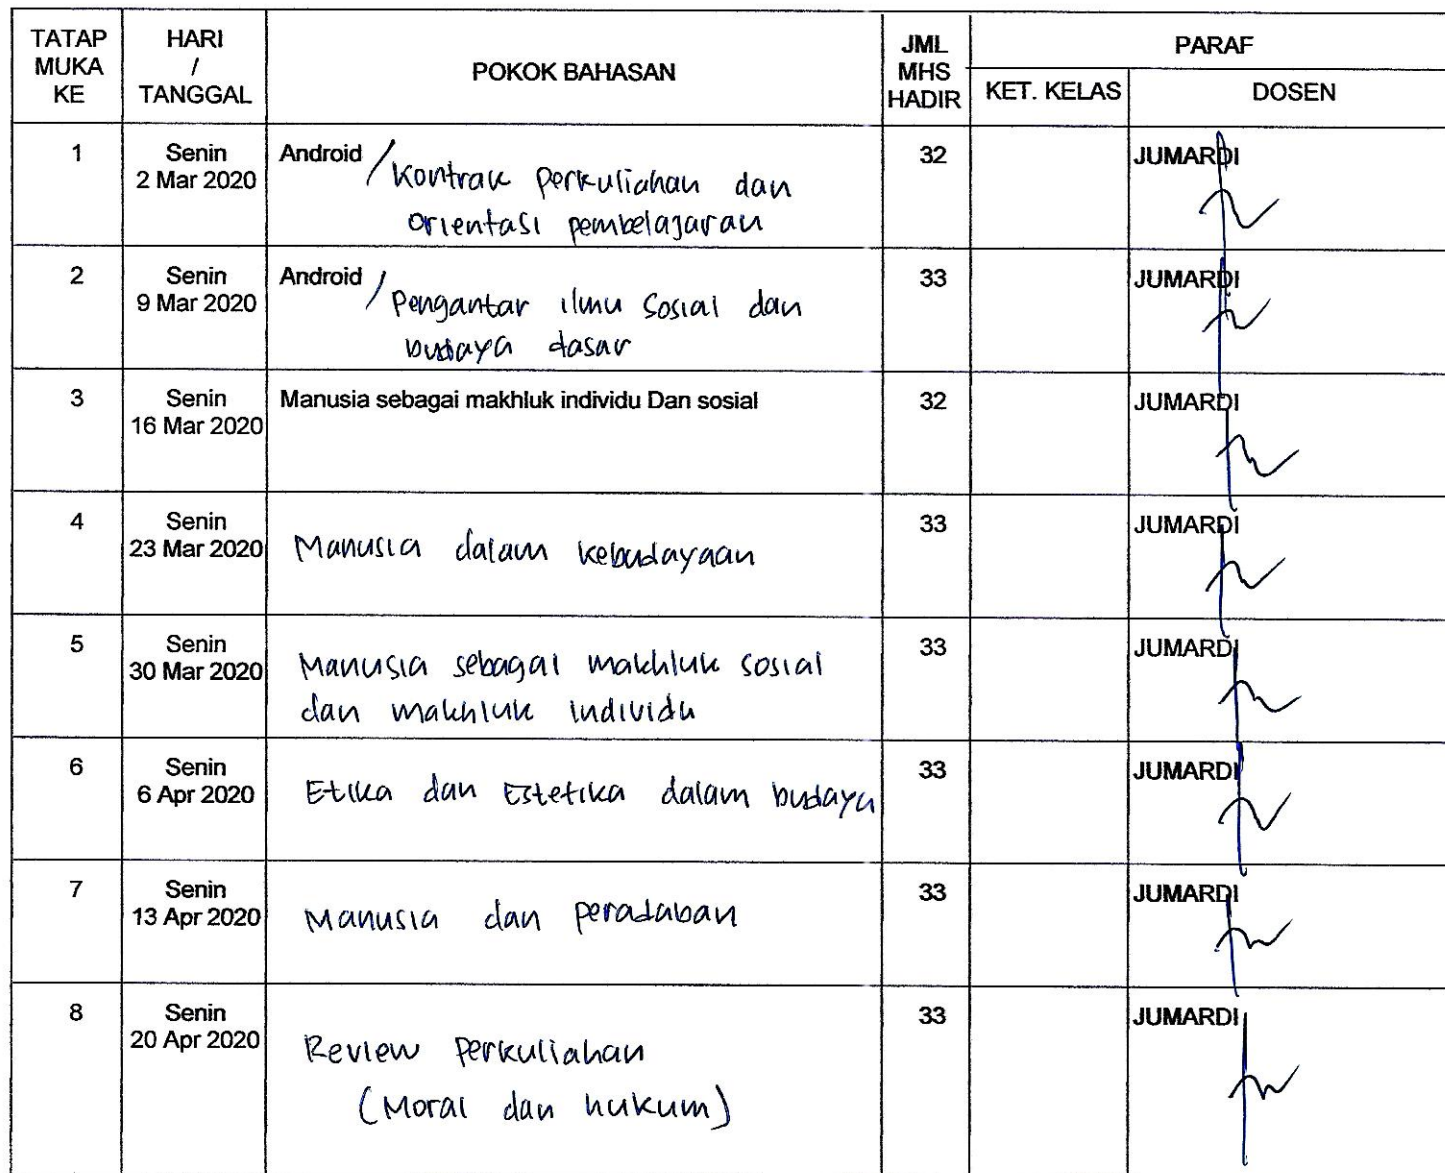 TATAP MUKA KE
HARI / TANGGAL
POKOK BAHASAN
JML MHS HADIR
PARAF
KET. KELAS
DOSEN
1
Senin
2 Mar 2020
Android / Kontrak perkuliahan dan
orientasi pembelajaran
32
JUMARDI
2
Senin
9 Mar 2020
Android / Pengantar ilmu sosial dan
budaya dasar
33
JUMARDI
3
Senin
16 Mar 2020
Manusia sebagai makhluk individu Dan sosial
32
JUMARDI
4
Senin
23 Mar 2020
Manusia dalam kebudayaan
33
JUMARDI
5
Senin
30 Mar 2020
Manusia sebagai makhluk sosial
dan makhluk individu
33
JUMARDI
6
Senin
6 Apr 2020
Etika dan Estetika dalam budaya
33
JUMARDI
7
Senin
13 Apr 2020
Manusia dan peradaban
33
JUMARDI
8
Senin
20 Apr 2020
Review perkuliahan
(Moral dan hukum)
33
JUMARDI